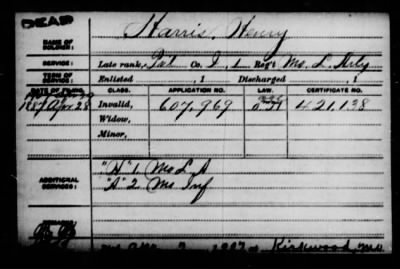 DEAD
NAME OF SOLDIER: Harris, Henry
SERVICE: Late rank, Pvt Co. I, 1 Reg't Mo. L. Arty
TERM OF SERVICE: Enlisted , 1 Discharged , 1
DATE OF FILING. CLASS. APPLICATION NO. LAW. CERTIFICATE NO.
1887 Apr. 28 Invalid, 607,969 421,138
Widow,
Minor,
ADDITIONAL SERVICES: "H" 1 Mo L A
"A" 2 Mo Inf
REMARKS:
Kirkwood, Mo